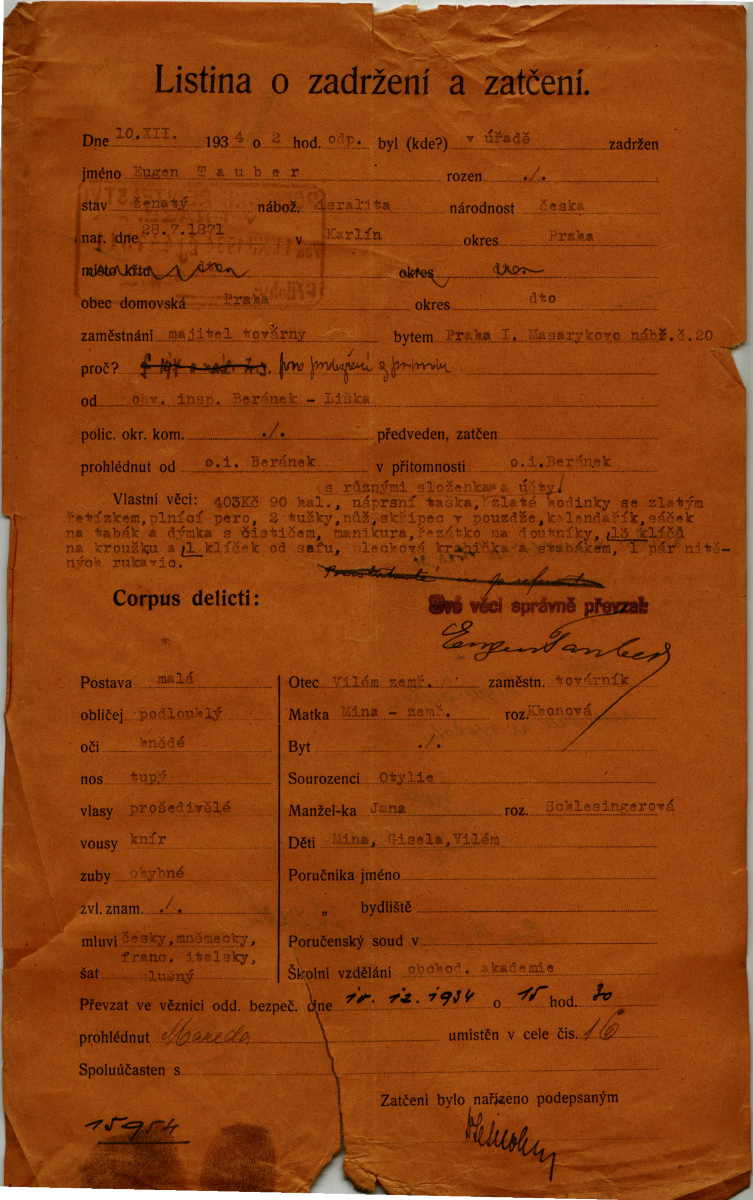 Listina o zadržení a zatčení.
Dne 10.XII. 1934 o 2 hod. odp. byl (kde?) v úřadě zadržen
jméno Eugen Tauber rozen ./.
stav ženatý nábož. isralita národnost česká
nar. dne 28.7.1871 v Karlín okres Praha
místo okres
obec domovská Praha okres dto
zaměstnání majitel továrny bytem Praha I. Masarykovo nábř.č.20
proč? pro podezření z
od obv. insp. Beránek - Liška
polic. okr. kom. ./. předveden, zatčen
prohlédnut od o.i. Beránek v přítomnosti o.i.Beránek
s různými složenkama a účty
Vlastní věci: 403Kč 90 hal., náprsní taška, zlaté hodinky se zlatým
řetízkem,plnící pero, 2 tužky,nůž,skřipec v pouzdře,kalendářík,sáček
na tabák a dýmka s čističem, manikura,řezátko na doutníky, 13 klíčů
na kroužku a 1 klíček od safu, plechová krabička s tabákem, 1 pár nitě-
ných rukavic.
Corpus delicti:
Své věci správně převzal:
Eugen Tauber
Postava malá
obličej podlouhlý
oči hnědé
nos tupý
vlasy prošedivělé
vousy knír
zuby chybné
zvl. znam. ./.
mluví česky,německy,
franc. italsky,
šat slušný
Otec Vilém zemř. zaměstn. továrník
Matka Mina - zemř. roz. Khonová
Byt ./.
Sourozenci Otylie
Manžel-ka Jana roz. Schlesingerová
Děti Mina, Gisela,Vilém
Poručníka jméno
„ bydliště
Poručenský soud v
Školní vzdělání obchod. akademie
Převzat ve věznici odd. bezpeč. dne 10. 12. 1934 o 15 hod. 30
prohlédnut Mareda umístěn v cele čís. 16
Spoluúčasten s
Zatčení bylo nařízeno podepsaným
15954